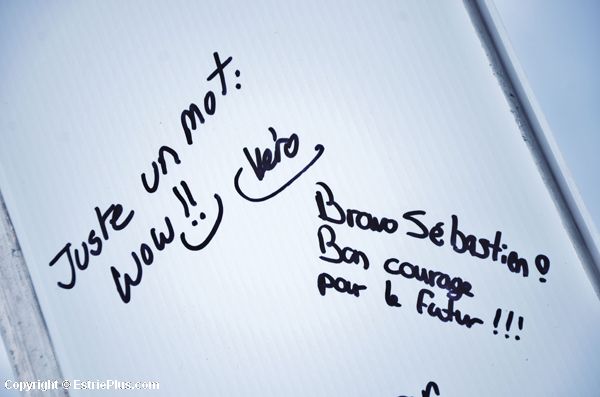 Juste un mot:
Wow!!
Véro
Bravo Sébastien!
Bon courage
pour le futur!!!
Copyright © EstriePlus.com